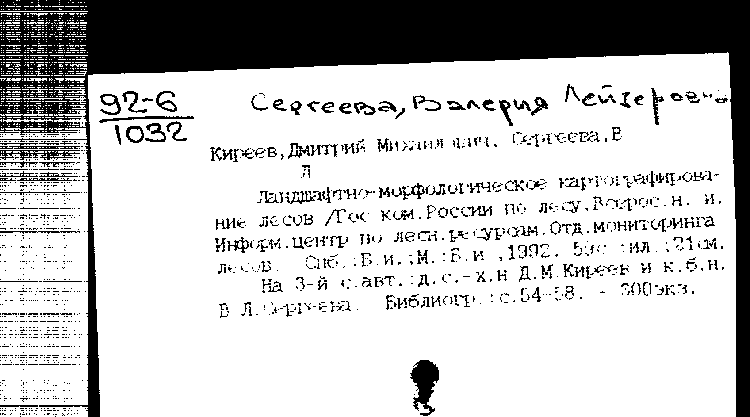 92-6
1032
Сергеева, Валерия Лейзеровна
Киреев, Дмитрий Михайлович, Сергеева, В
Л
Ландшафтно-морфологическое картографирова-
ние лесов /Гос ком.России по лесу.Всерос.н. и.
Информ.центр по лесн.ресурсам.Отд.мониторинга
лесов. Спб.:Б.и.;М.:Б.и ,1992. 59с :ил.;21см.
На 3-й с.авт.:д.с.-х.н Д.М.Киреев и к.б.н.
В Л.Сергеева. Библиогр.:с.54-58. - 300экз.